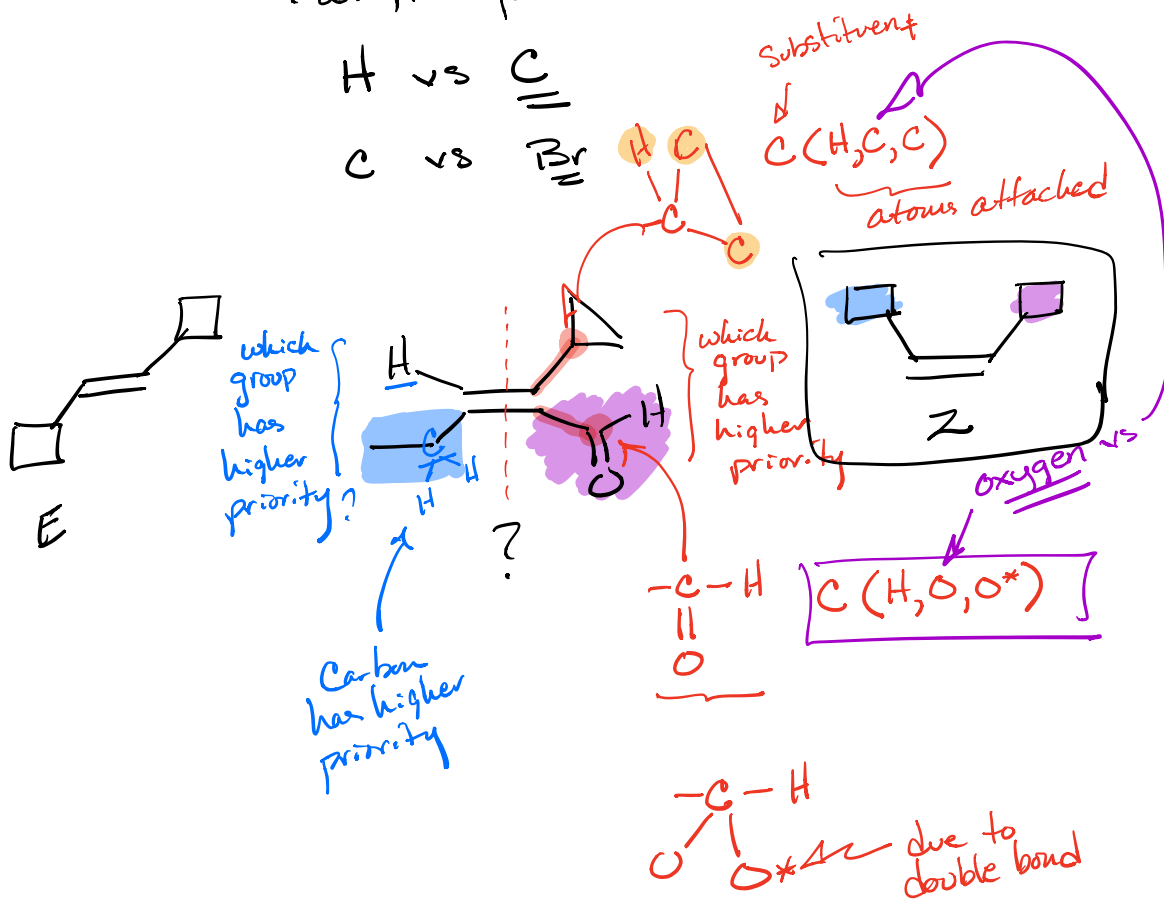 H vs C
C vs Br
substituent
C (H,C,C)
atoms attached
H C
C
C
which
group
has
higher
priority?
H
C
H
H
H
O
which
group
has
higher
priority
E
?
Z
oxygen vs
C (H,O,O*)
-C-H
O
Carbon
has higher
priority
-C-H
O O*
due to
double bond